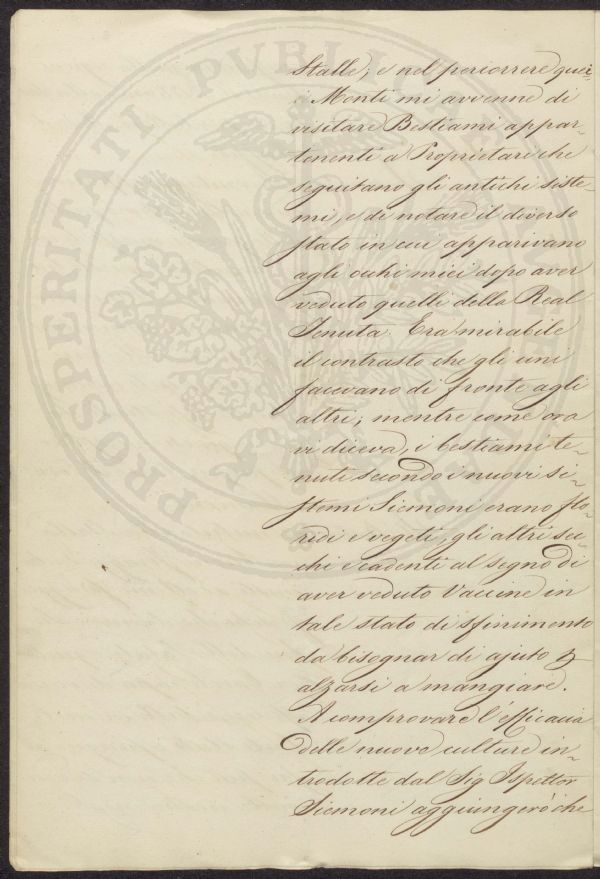 Stalle; e nel percorrere quei
Monti mi avvenne di
visitare Bestiami appar-
tenenti a Proprietari che
seguitano gli antichi siste-
mi, e di notare il diverso
stato in cui apparivano
agli occhi miei dopo aver
veduto quelli della Real
Tenuta. Era mirabile
il contrasto che gli uni
facevano di fronte agli
altri; mentre come ora
vi diceva, i bestiami te-
nuti secondo i nuovi si-
stemi Siemoni erano flo-
ridi e vegeti, gli altri sec-
chi e cadenti al segno di
aver veduto Vaccine in
tale stato di sfinimento
da bisognar di ajuto p
alzarsi a mangiare.
A comprovare l'efficacia
delle nuove culture in-
trodotte dal Sig Ispettor
Siemoni aggiungerò che
PROSPERITATI PVBLI